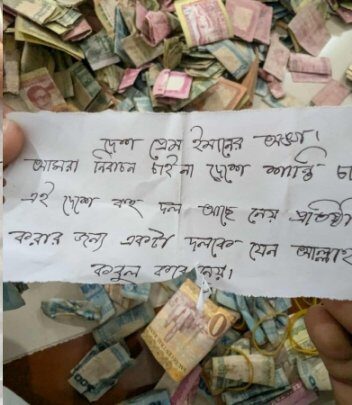 দেশ প্রেম ইমানের অঙ্গ।
আমরা নির্বাচন চাই না দেশে শান্তি চা
এই দেশে বহু দল আছে নেয় প্রতিষ্ঠা
করার জন্য একটা দলকে যেন আল্লাহ
কবুল করে নেয়।